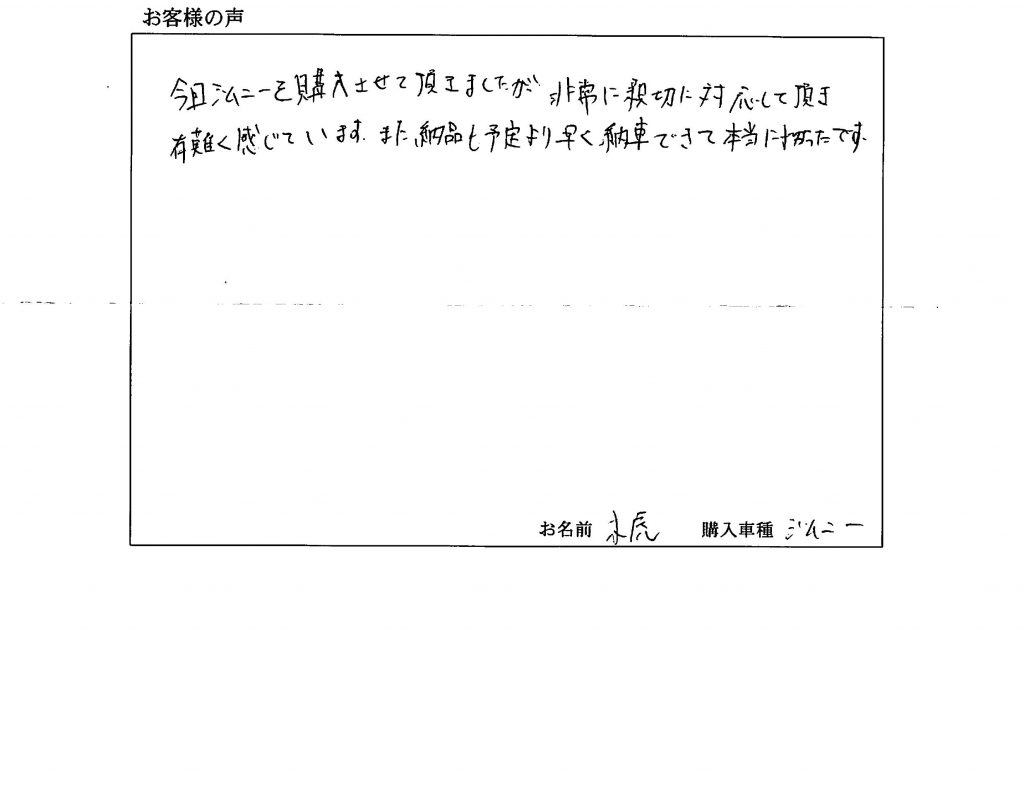 お客様の声
今日ジムニーを購入させて頂きましたが 非常に親切に対応して頂き
有難く感じています。また納品も予定より早く納車できて本当に助かったです。
お名前 赤虎 購入車種 ジムニー